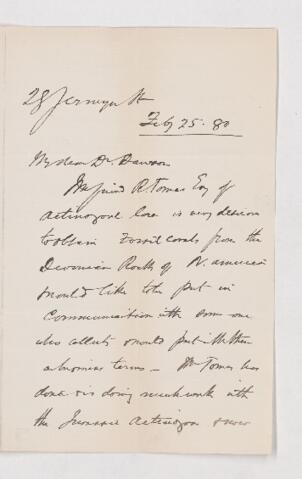 28 Jermyn St
Feby 25. 80
My dear Dr. Dawson
My friend R Tomes Esq of
is very desirous
to obtain Fossil corals from the
Devonian Rocks of N. america
would like to be put in
Communication with some one
who collects & would part with them
on business terms – Mr Tomes has
done & is doing much work with
the Jurassic Actinozoa & now